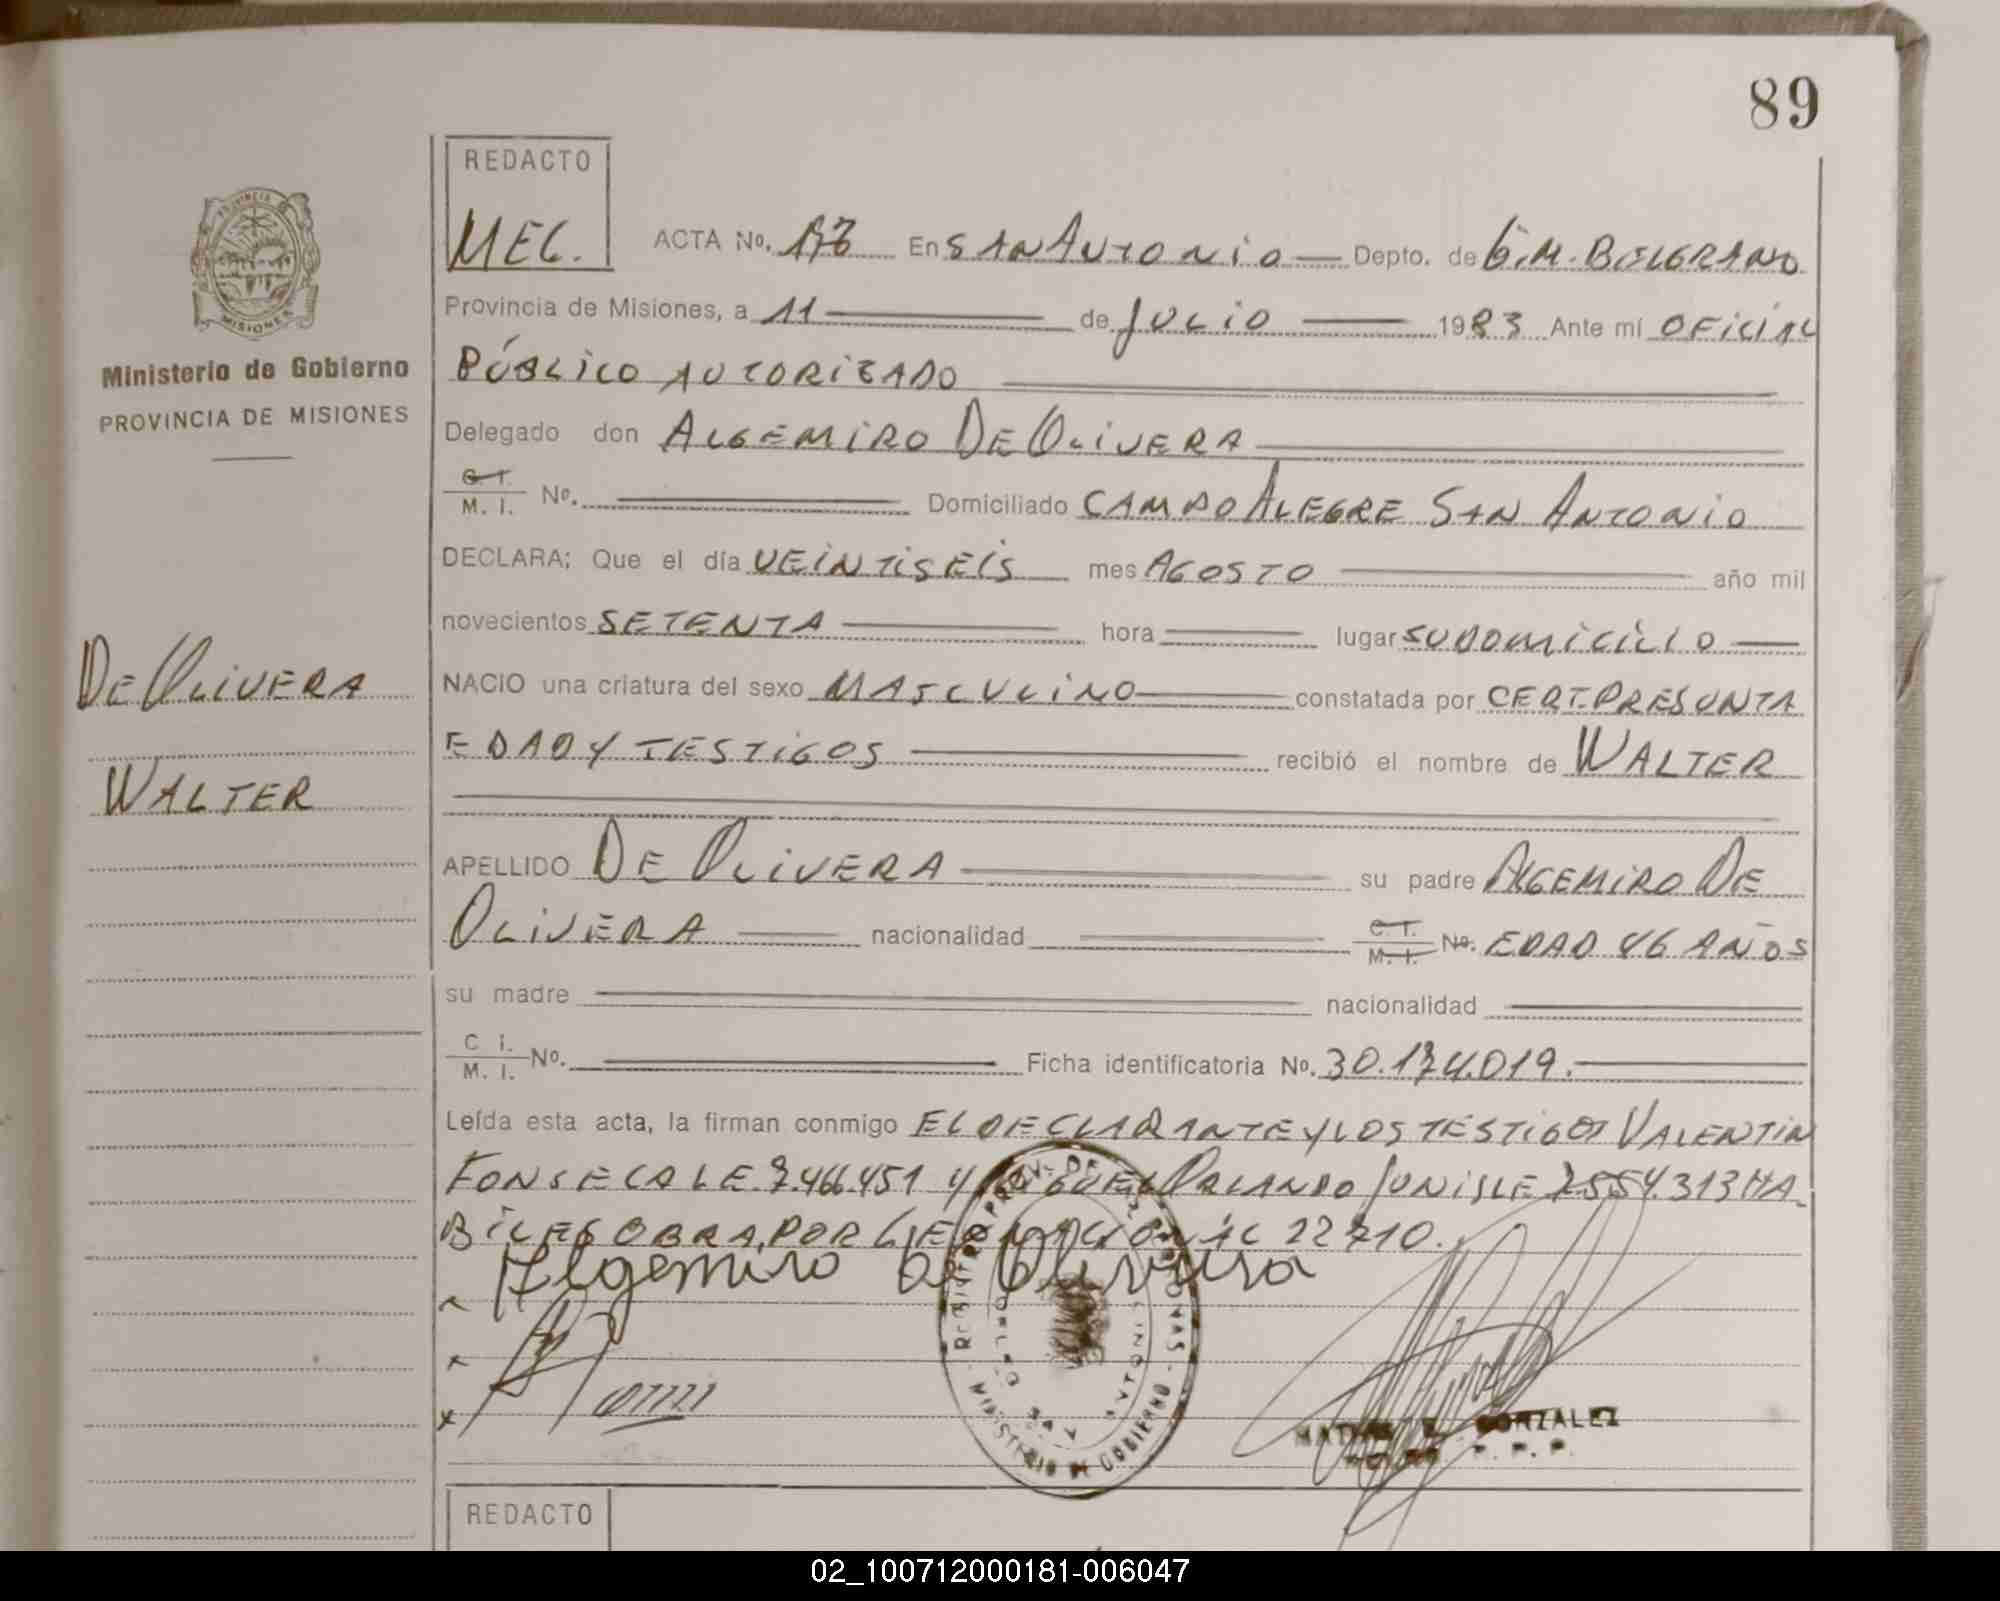 89
REDACTO
MEG.
ACTA No. 173 En SAN ANTONIO Depto. de G.M. BELGRANO
PROVINCIA
MISIONES
Ministerio de Gobierno
PROVINCIA DE MISIONES
Provincia de Misiones, a 11 de JULIO 1983 Ante mí OFICIAL
PÚBLICO AUTORIZADO
Delegado don ALGEMIRO DE OLIVERA
C. I. M. I. No. Domiciliado CAMPO ALEGRE SAN ANTONIO
DECLARA; Que el día VEINTISEIS mes AGOSTO año mil
novecientos SETENTA hora lugar SU DOMICILIO
DE OLIVERA
WALTER
NACIO una criatura del sexo MASCULINO constatada por CERT. PRESUNTA
EDAD Y TESTIGOS recibió el nombre de WALTER
APELLIDO DE OLIVERA su padre ALGEMIRO DE
OLIVERA nacionalidad C. I. M. I. No. EDAD 46 AÑOS
su madre nacionalidad
C I. M. I. No. Ficha identificatoria No. 30.174.019.
Leída esta acta, la firman conmigo EL DECLARANTE Y LOS TESTIGOS VALENTIN
FONSECA LE. 7.466.451 Y ORLANDO LE 7.554.313 HA
BILES OBRA POR LEY NACIONAL 22710.
Algemiro de Oliveira
REGISTRO PROV. DE LAS PERSONAS
MINISTERIO DE GOBIERNO
SAN ANTONIO
GONZALEZ
REDACTO
02_100712000181-006047